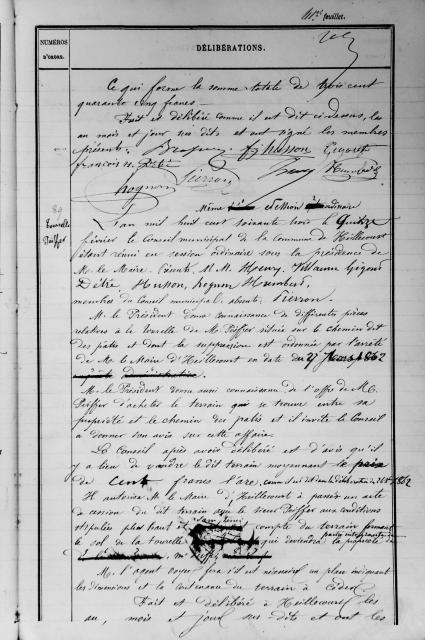 feuillet.
NUMÉROS
D'ORDRE.
DÉLIBÉRATIONS.
Ce qui forme la somme totale de trois cent
quarante cinq francs —
Fait et délibéré comme il est dit ci-dessus, les
au mois et jour sus dits et ont signé les membres
présents.
Même Session
Tourelle
L'an mil huit cent soixante trois le Quinze
février le Conseil municipal de la commune de Heillecourt
étant réuni en session ordinaire sous la présidence de
M. le Maire. Présents M.M. Henry, Villaume
Husson, Humbert,
membres du Conseil municipal. absent. Pierron.
M. le Président donne connaissance de différentes pièces
relatives à la tourelle de Mr. située sur le chemin dit
des patis et dont la suppression est ordonnée par l'arrêté
de M. le Maire d'Heillecourt en date du 27 1862
M. le Président donne aussi connaissance de l'offre de M.
d'acheter le terrain qui se trouve entre sa
propriété et le chemin des patis et il invite le Conseil
à donner son avis sur cette affaire.
Le Conseil après avoir délibéré est d'avis qu'il
y a lieu de vendre le dit terrain moyennant le prix
de Cent francs l'are, 1862
Il autorise M. le Maire d'Heillecourt à passer un acte
de cession du dit terrain avec le sieur aux conditions
stipulées plus haut et compte du terrain formant
le sol de la tourelle qui deviendra la propriété de
M. l'agent voyer fera s'il est nécessaire un plan indiquant
les dimensions et la contenance du terrain à céder.
Fait et délibéré à Heillecourt les
au, mois et jour sus dits et ont les